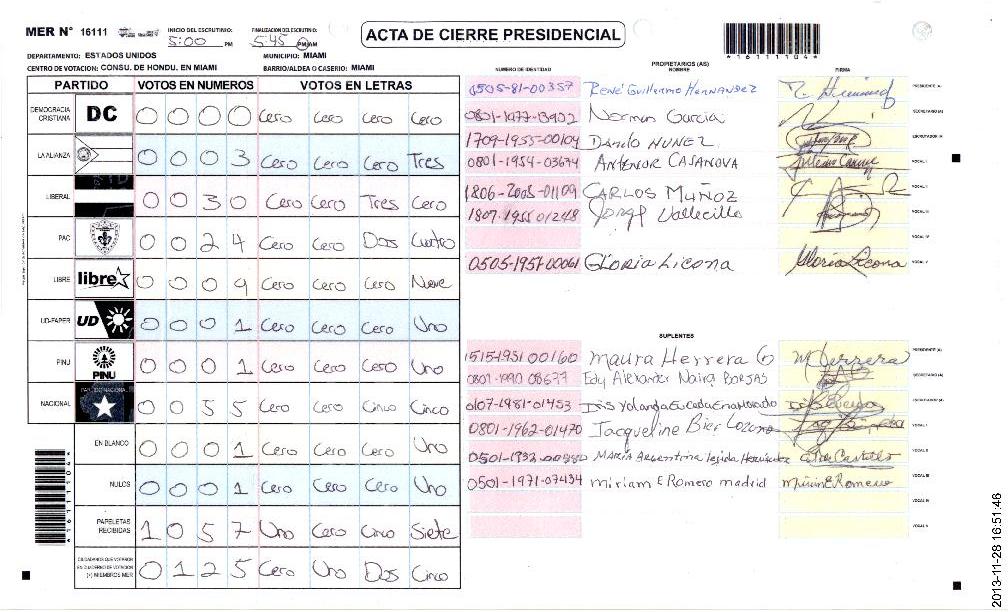 MER N° 16111
INICIO DEL ESCRUTINIO: 5:00 PM
FINALIZACION DEL ESCRUTINIO: 5:45 PM AM
ACTA DE CIERRE PRESIDENCIAL
*16111104*
DEPARTAMENTO: ESTADOS UNIDOS MUNICIPIO: MIAMI
CENTRO DE VOTACION: CONSU. DE HONDU. EN MIAMI BARRIO/ALDEA O CASERIO: MIAMI
PARTIDO VOTOS EN NUMEROS VOTOS EN LETRAS
DEMOCRACIA CRISTIANA DC 0 0 0 0 Cero Cero Cero Cero
LA ALIANZA 0 0 0 3 Cero Cero Cero Tres
LIBERAL 0 0 3 0 Cero Cero Tres Cero
PAC 0 0 2 4 Cero Cero Dos Cuatro
LIBRE libre 0 0 0 9 Cero Cero Cero Nueve
UD-FAPER UD 0 0 0 1 Cero Cero Cero Uno
PINU PINU 0 0 0 1 Cero Cero Cero Uno
NACIONAL 0 0 5 5 Cero Cero Cinco Cinco
EN BLANCO 0 0 0 1 Cero Cero Cero Uno
NULOS 0 0 0 1 Cero Cero Cero Uno
PAPELETAS RECIBIDAS 1 0 5 7 Uno Cero Cinco Siete
CIUDADANOS QUE VOTARON EN CUADERNO DE VOTACION (+) MIEMBROS MER 0 1 2 5 Cero Uno Dos Cinco
*16111104*
PROPIETARIOS (AS)
NUMERO DE IDENTIDAD NOMBRE FIRMA
0505-81-00357 René Guillermo HERNANDEZ PRESIDENTE (A)
0801-1977-13902 Norman Garcia SECRETARIO (A)
1709-1955-00104 Danilo NUNEZ ESCRUTADOR (A)
0801-1954-03674 ANTENOR CASANOVA VOCAL I
1806-2005-01109 CARLOS MUÑOZ VOCAL II
1807-1955-01248 Jorge Vallecillo VOCAL III
VOCAL IV
0505-1957-00061 GLORIA Licona Gloria Licona VOCAL V
SUPLENTES
1515-1951 00160 Maura Herrera M Herrera PRESIDENTE (A)
0801-1990 08677 Edy Alexander Naira BORJAS SECRETARIO (A)
0107-1981-01453 Iris Yolanda Euceda Enamorado ESCRUTADOR (A)
0801-1962-01470 Jacqueline Bier Lozano VOCAL I
MARIA Argentina VOCAL II
0501-1971-07434 Miriam E Romero madrid Miriam E Romero VOCAL III
VOCAL IV
VOCAL V
2013-11-28 16:51:46